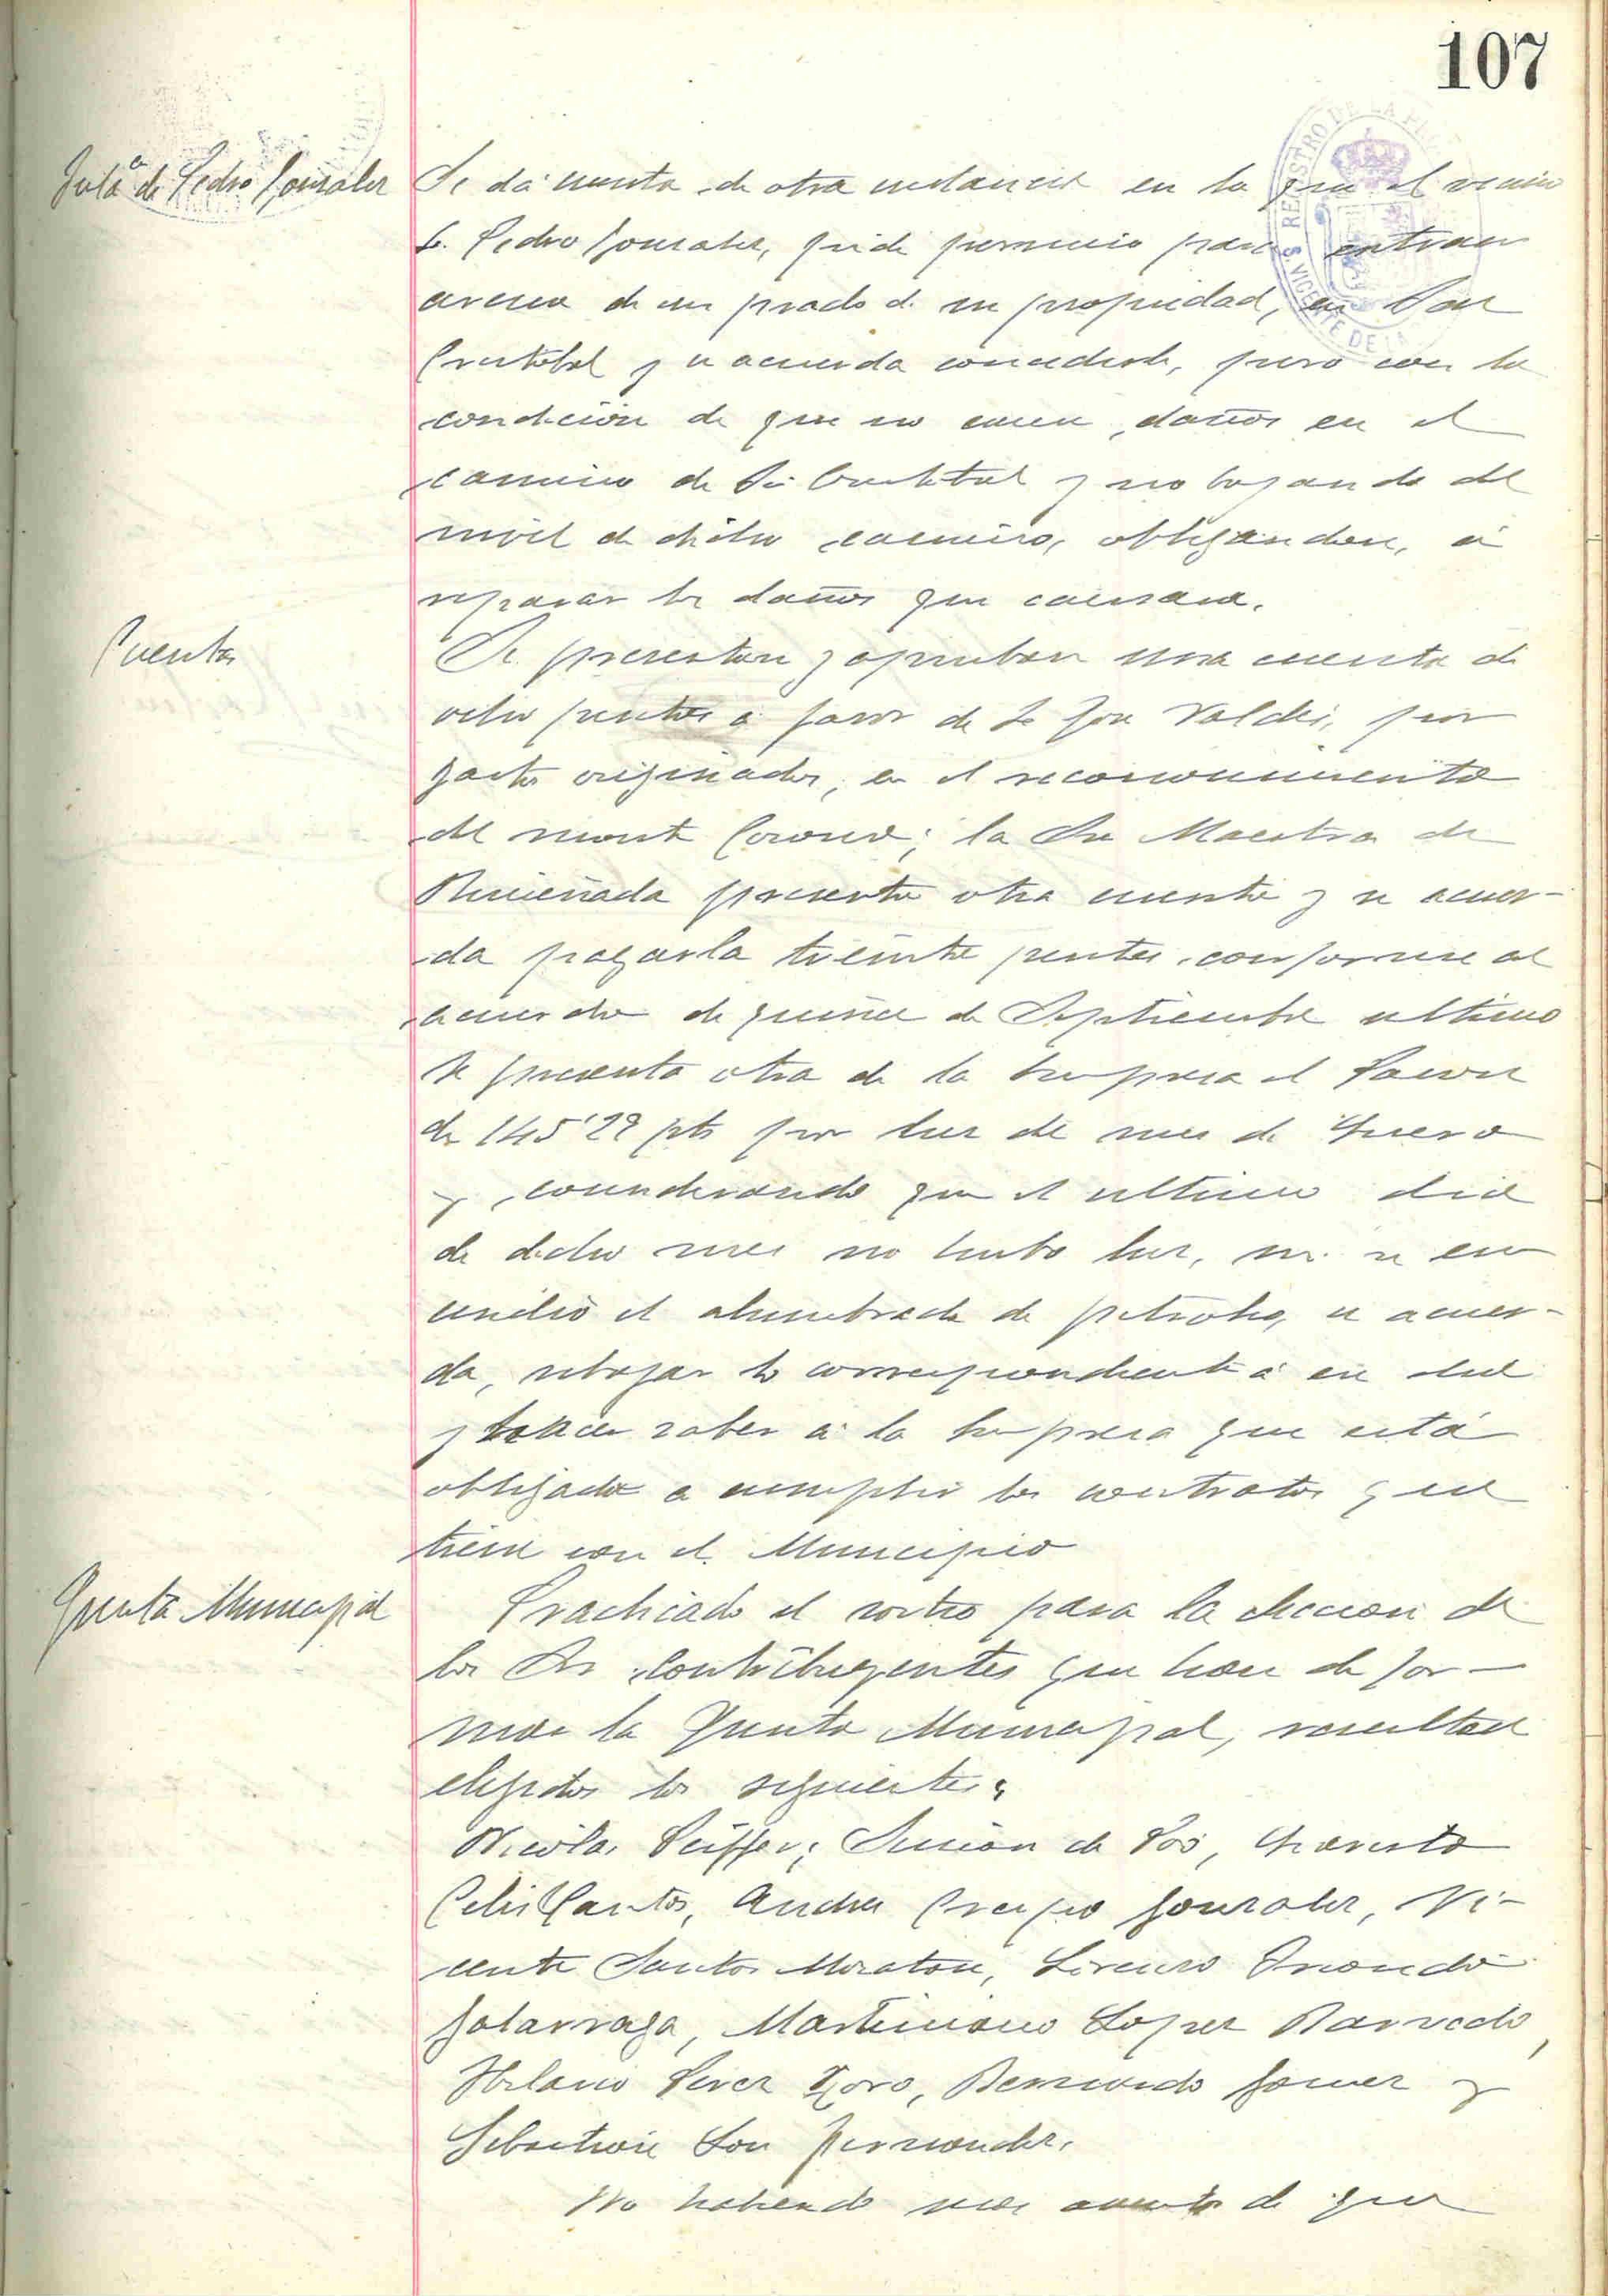 107
Instª de Pedro Gonzalez
Se dá cuenta de otra instancia en la que el vecino
D. Pedro Gonzalez, pide permiso para extraer
arena de un prado de su propiedad, en San
Cristobal y se acuerda concederle, pero con la
condición de que no cause daños en el
camino de Sn Cristobal y no bajando del
nivel de dicho camino, obligandose, á
reparar los daños que causara.
Cuentas
Se presentan y aprueban una cuenta de
ocho pesetas á favor de D. José Valdés, por
gastos originados, en el reconocimiento
del monte Corona; la Sra Maestra de
presenta otra cuenta y se acuer-
da pagarla treinta pesetas conforme al
acuerdo de quince de Septiembre ultimo
se presenta otra de la Empresa el
de 145'29 pts por luz del mes de Enero
y considerando que el ultimo dia
de dicho mes no hubo luz, ni se en
cendió el alumbrado de petroleo, se acuer-
da, rebajar lo correspondiente á ese dia
y hacer saber á la Empresa que está
obligada a cumplir los contratos que
tiene con el Municipio
Junta Municipal
Practicado el sorteo para la eleccion de
los Srs contribuyentes que han de for-
mar la Junta Municipal, resultan
elegidos los siguientes:
Nicolas Simon de Evaristo
Celis Santos, Andres Crespo Gonzalez, Vi-
cente Santos Lorenzo
Galarraga, Martiniano Lopez Barredo,
Hilario Perez Bernardo Gomez y
Sebastian Fernandez.
No habiendo mas asuntos de que